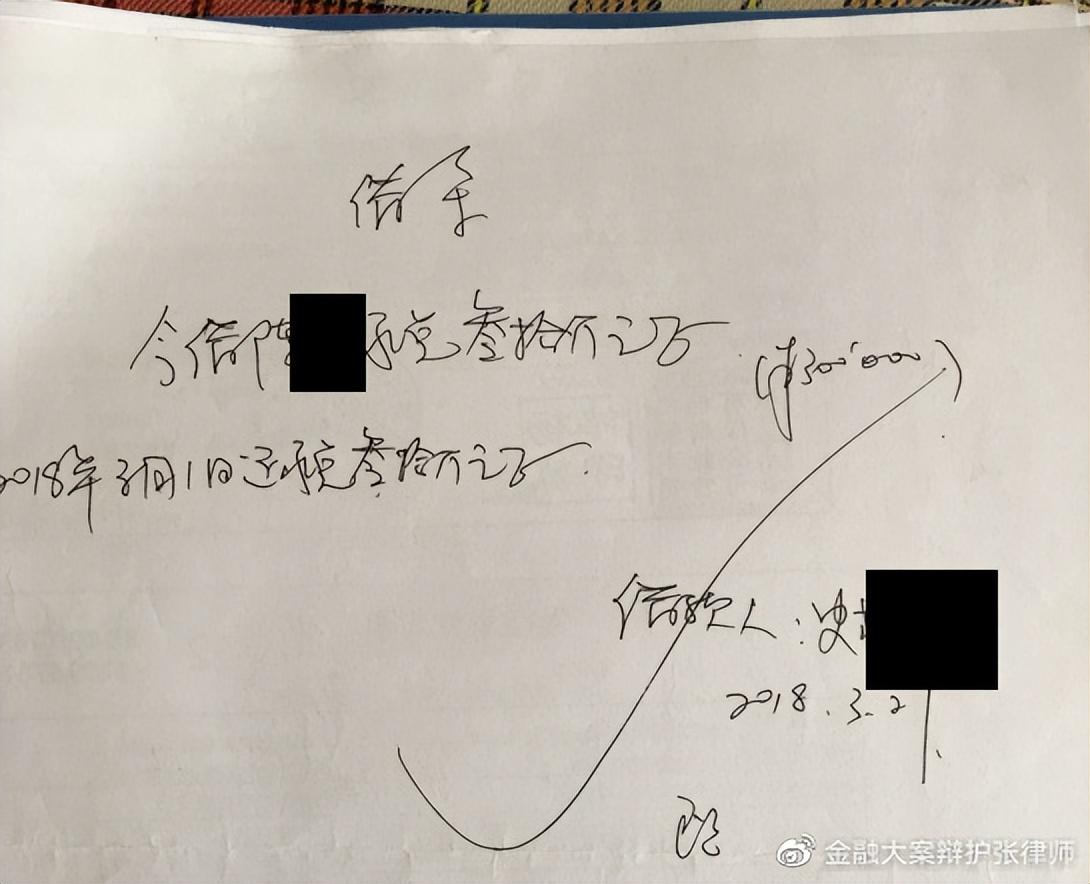 借条
今借陈 承兑叁拾万元正 (¥300'000)
2018年3月1日还承兑叁拾万元正.
借款人:史
2018.3.21
金融大案辩护张律师